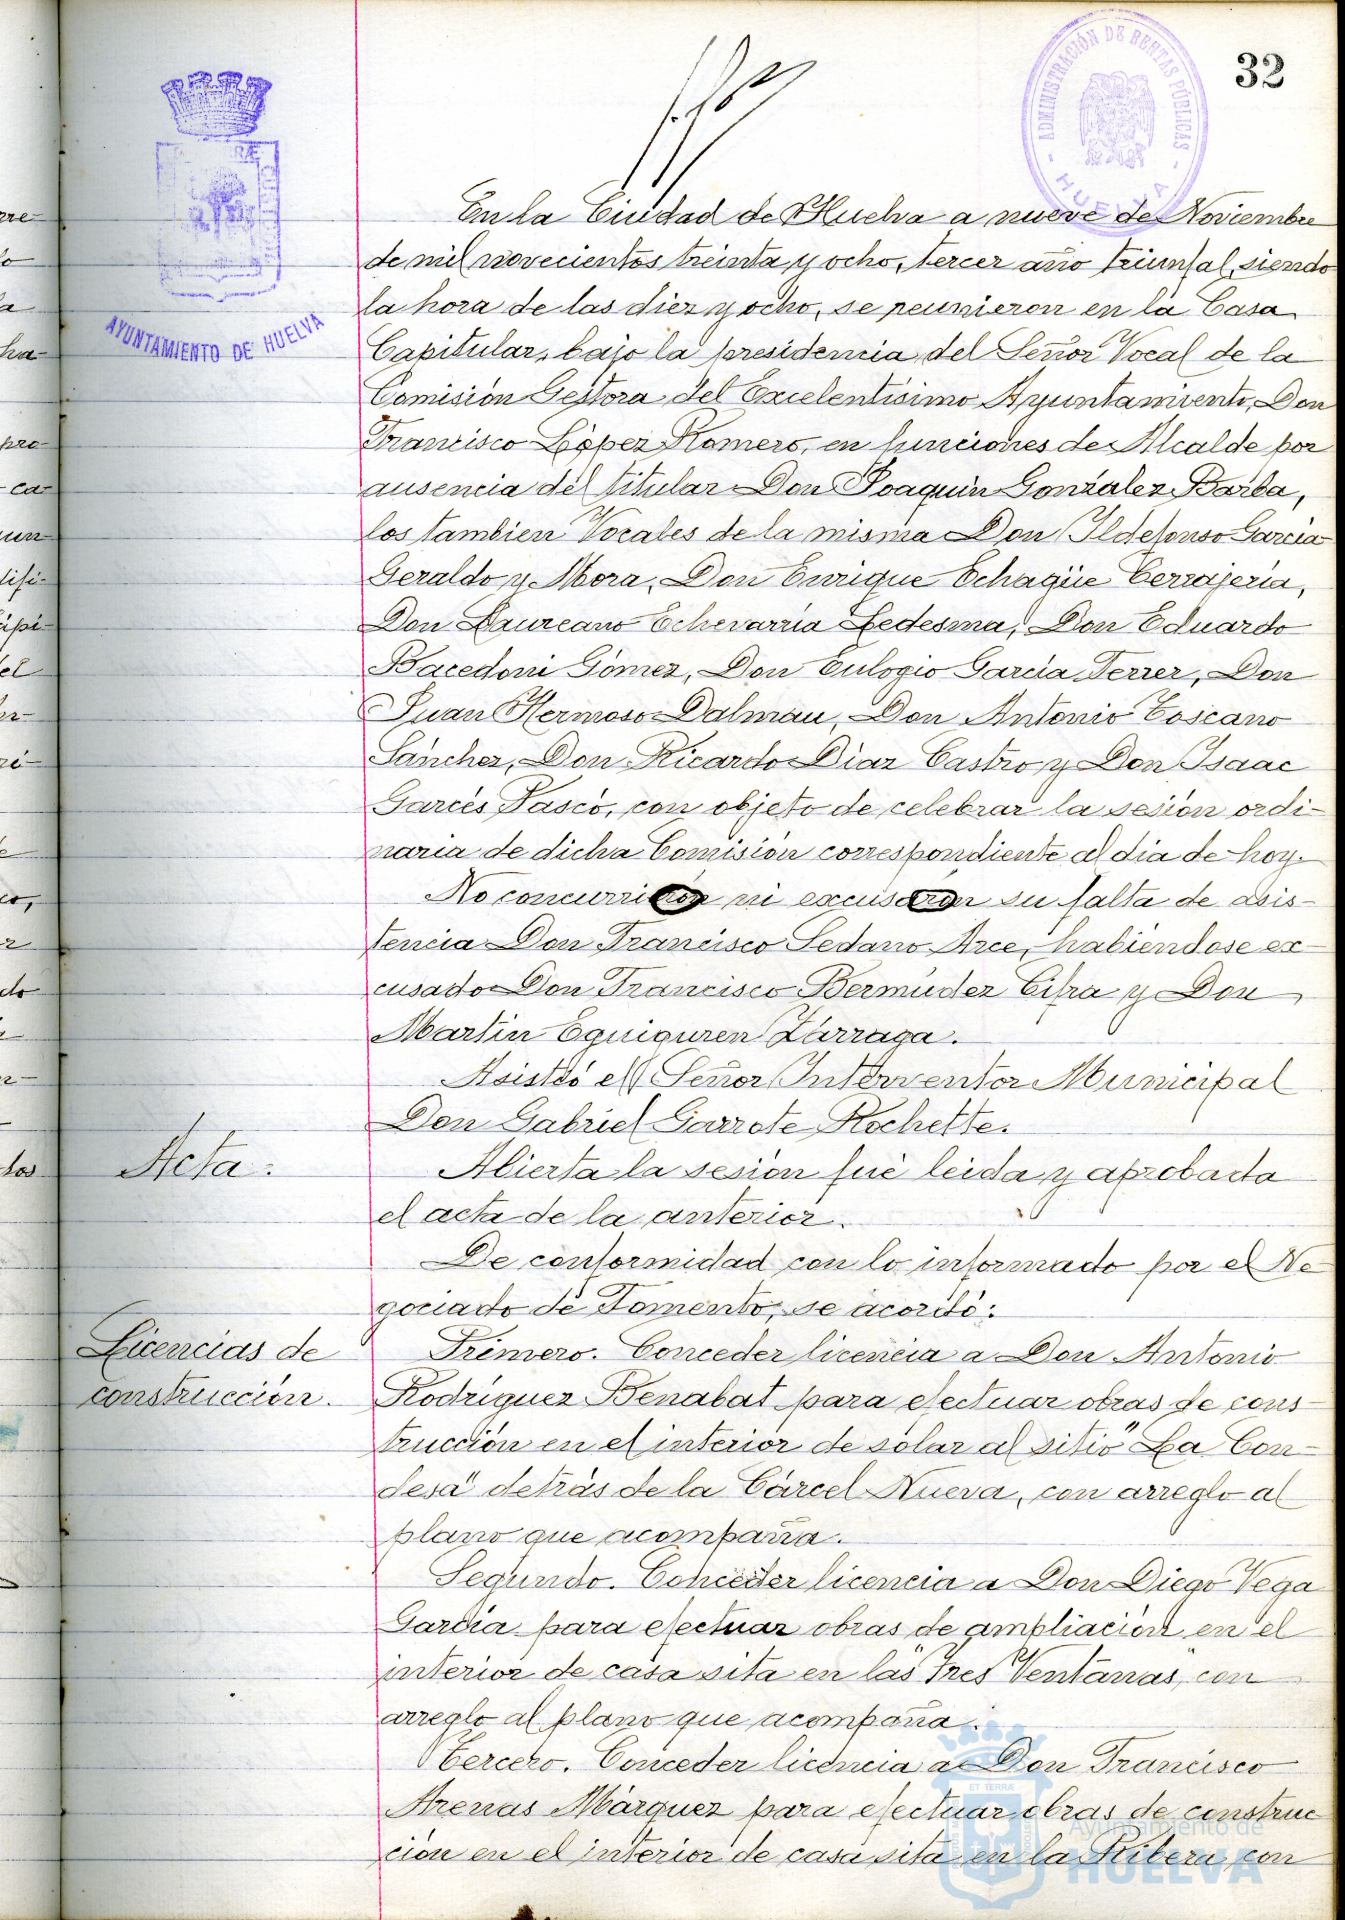 32
ADMINISTRACIÓN DE RENTAS PÚBLICAS
HUELVA
AYUNTAMIENTO DE HUELVA
En la Ciudad de Huelva a nueve de Noviembre
de mil novecientos treinta y ocho, tercer año triunfal, siendo
la hora de las diez y ocho, se reunieron en la Casa
Capitular, bajo la presidencia del Señor Vocal de la
Comisión Gestora del Excelentísimo Ayuntamiento, Don
Francisco López Romero, en funciones de Alcalde por
ausencia del titular Don Joaquín González Barba,
los tambien Vocales de la misma Don Ildefonso García
Geraldo y Mora, Don Enrique Echagüe Cerrajería,
Don Laureano Echevarría Ledesma, Don Eduardo
Bacedoni Gómez, Don Eulogio García Ferrer, Don
Juan Hermoso Dalmau, Don Antonio Toscano
Sánchez, Don Ricardo Díaz Castro y Don Isaac
Garcés Pascó, con objeto de celebrar la sesión ordi-
naria de dicha Comisión correspondiente al día de hoy.
No concurrión ni excusaron su falta de asis-
tencia Don Francisco Sedano Arce, habiéndose ex-
cusado Don Francisco Bermúdez Cifra y Don
Martín Eguiguren Zárraga.
Asistió el Señor Interventor Municipal
Don Gabriel Garrote Rochette.
Acta.
Abierta la sesión fué leida y aprobada
el acta de la anterior.
De conformidad con lo informado por el Ne-
gociado de Fomento, se acordó:
Licencias de
construcción.
Primero. Conceder licencia a Don Antonio
Rodríguez Benabat para efectuar obras de cons-
trucción en el interior de solar al sitio "La Con-
desa" detrás de la Cárcel Nueva, con arreglo al
plano que acompaña.
Segundo. Conceder licencia a Don Diego Vega
García para efectuar obras de ampliación en el
interior de casa sita en las "Tres Ventanas", con
arreglo al plano que acompaña.
Tercero. Conceder licencia a Don Francisco
Arenas Márquez para efectuar obras de construc-
ción en el interior de casa sita en la Ribera con
ET TERRÆ
Ayuntamiento de
HUELVA